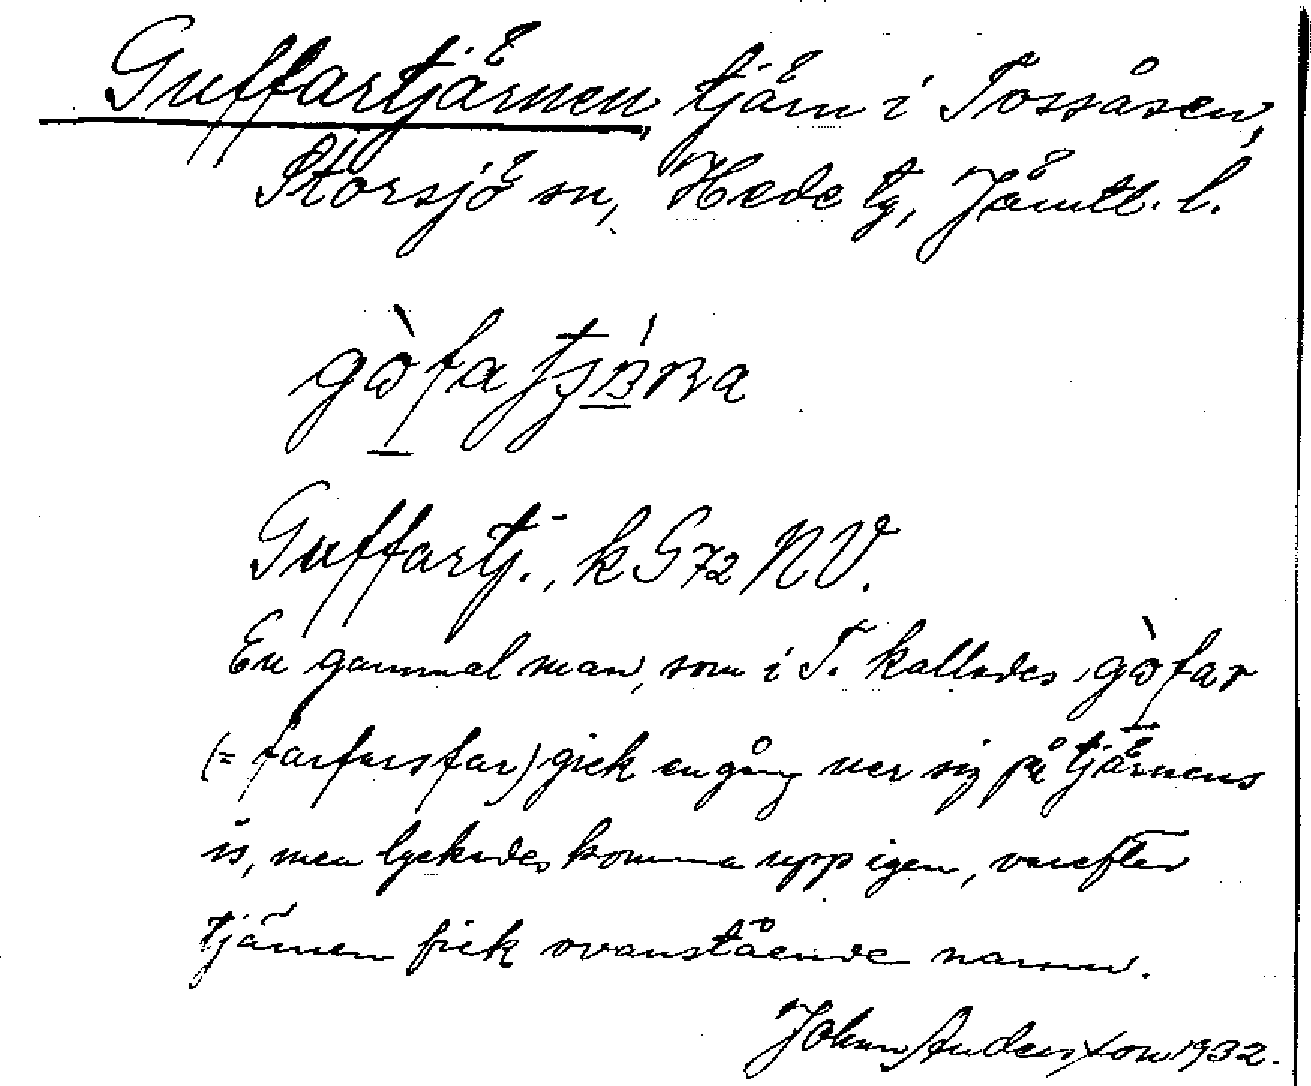 Guffartjärnen, tjärn i Tossåsen,
Storsjö sn, Hede tg, Jämtl. l.
Guffartj., k G72 NV.
En gammal man, som i T. kallades gòfar
(= farfarsfar) gick en gång ner sig på tjärnens
is, men lyckades komma upp igen, varefter
tjärnen fick ovanstående namn.
Johan Andersson 1932.